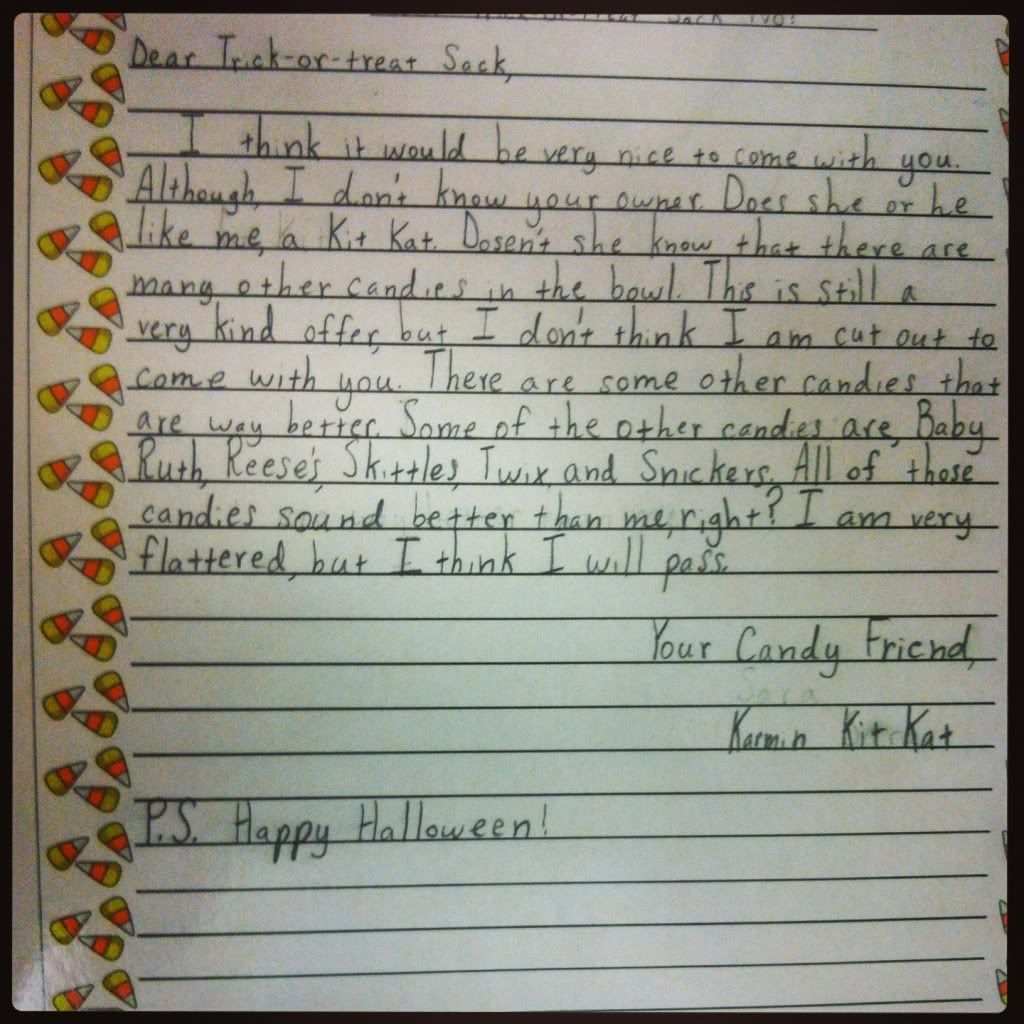 Dear Trick-or-treat Sack,
I think it would be very nice to come with you.
Although, I don't know your owner. Does she or he
like me, a Kit Kat. Dosen't she know that there are
many other candies in the bowl. This is still a
very kind offer, but I don't think I am cut out to
come with you. There are some other candies that
are way better. Some of the other candies are, Baby
Ruth, Reese's, Skittles, Twix, and Snickers. All of those
candies sound better than me, right? I am very
flattered, but I think I will pass.
Your Candy Friend,
Sara
Karmin Kit Kat
P.S. Happy Halloween!